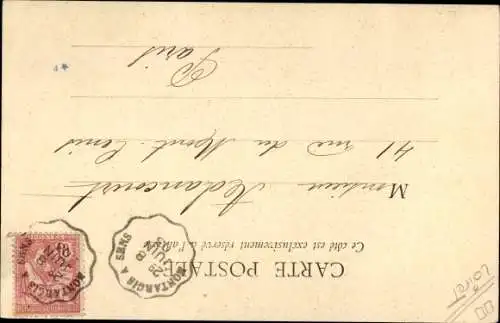 CARTE POSTALE
Ce côté est exclusivement réservé à l'adresse
Monsieur Hédancourt
41 rue du Mont Cenis
Paris
MONTARGIS A SENS
28
JUIN
03
MONTARGIS A SENS
JUIN
03